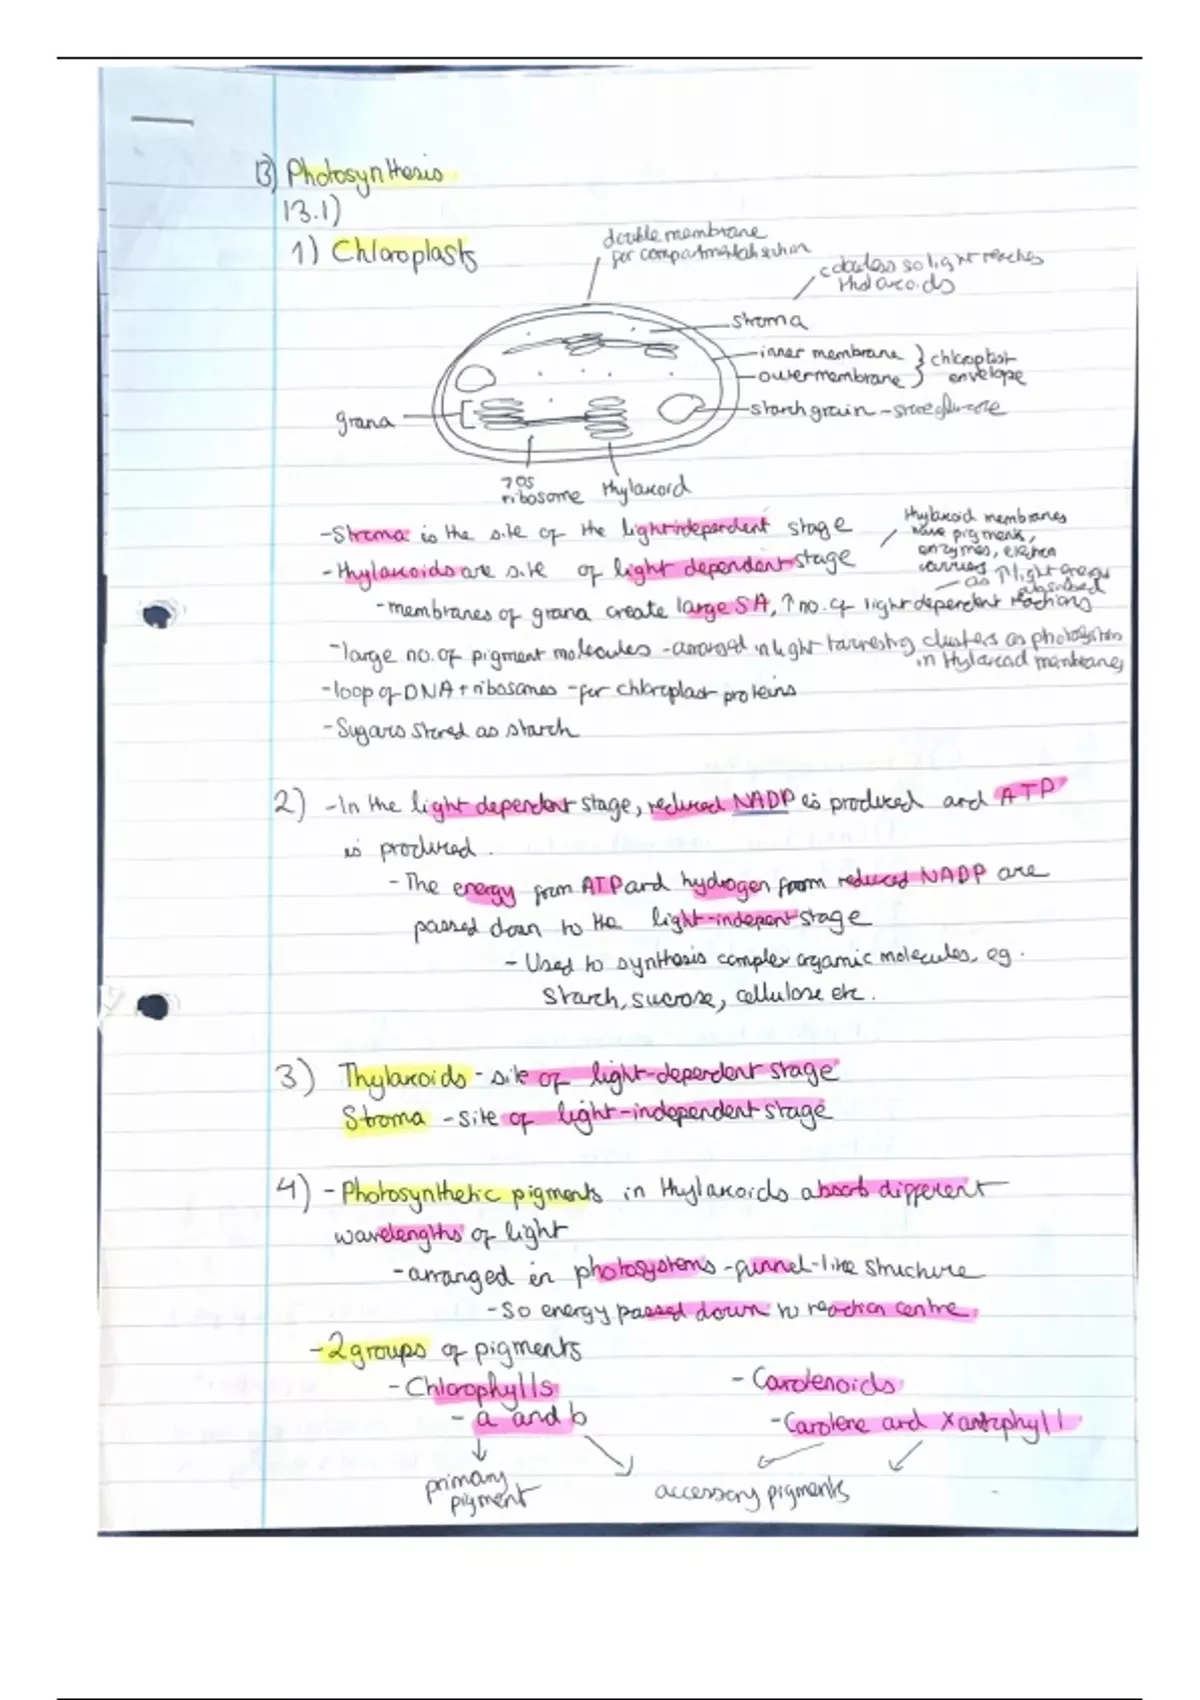 13) Photosynthesis
13.1)
1) Chloroplasts
double membrane
for compartmentalisation
colourless so light reaches
thylakoids
stroma
inner membrane } chloroplast
outer membrane } envelope
grana
starch grain - store glucose
70s
ribosome
thylakoid
- Stroma is the site of the light independent stage
- thylakoids are site of light dependent stage
thylakoid membranes
have pigments,
enzymes, electron
carriers
- as ↑ light energy
absorbed
- membranes of grana create large SA, ↑ no. of light dependent reactions
- large no. of pigment molecules - arranged in light harvesting clusters as photosystems
in thylakoid membranes
- loop of DNA + ribosomes - for chloroplast proteins
- Sugars stored as starch
2) - In the light dependent stage, reduced NADP is produced and ATP
is produced.
- The energy from ATP and hydrogen from reduced NADP are
passed down to the light-indepent stage
- Used to synthesis complex organic molecules, eg.
starch, sucrose, cellulose etc.
3) Thylakoids - site of light-dependent stage
Stroma - site of light-independent stage
4) - Photosynthetic pigments in thylakoids absorb different
wavelengths of light
- arranged in photosystems - funnel-like structure
- so energy passed down to reaction centre.
- 2 groups of pigments
- Chlorophylls
- Carotenoids
- a and b
- Carotene and Xantophyll
primary
pigment
accessory pigments